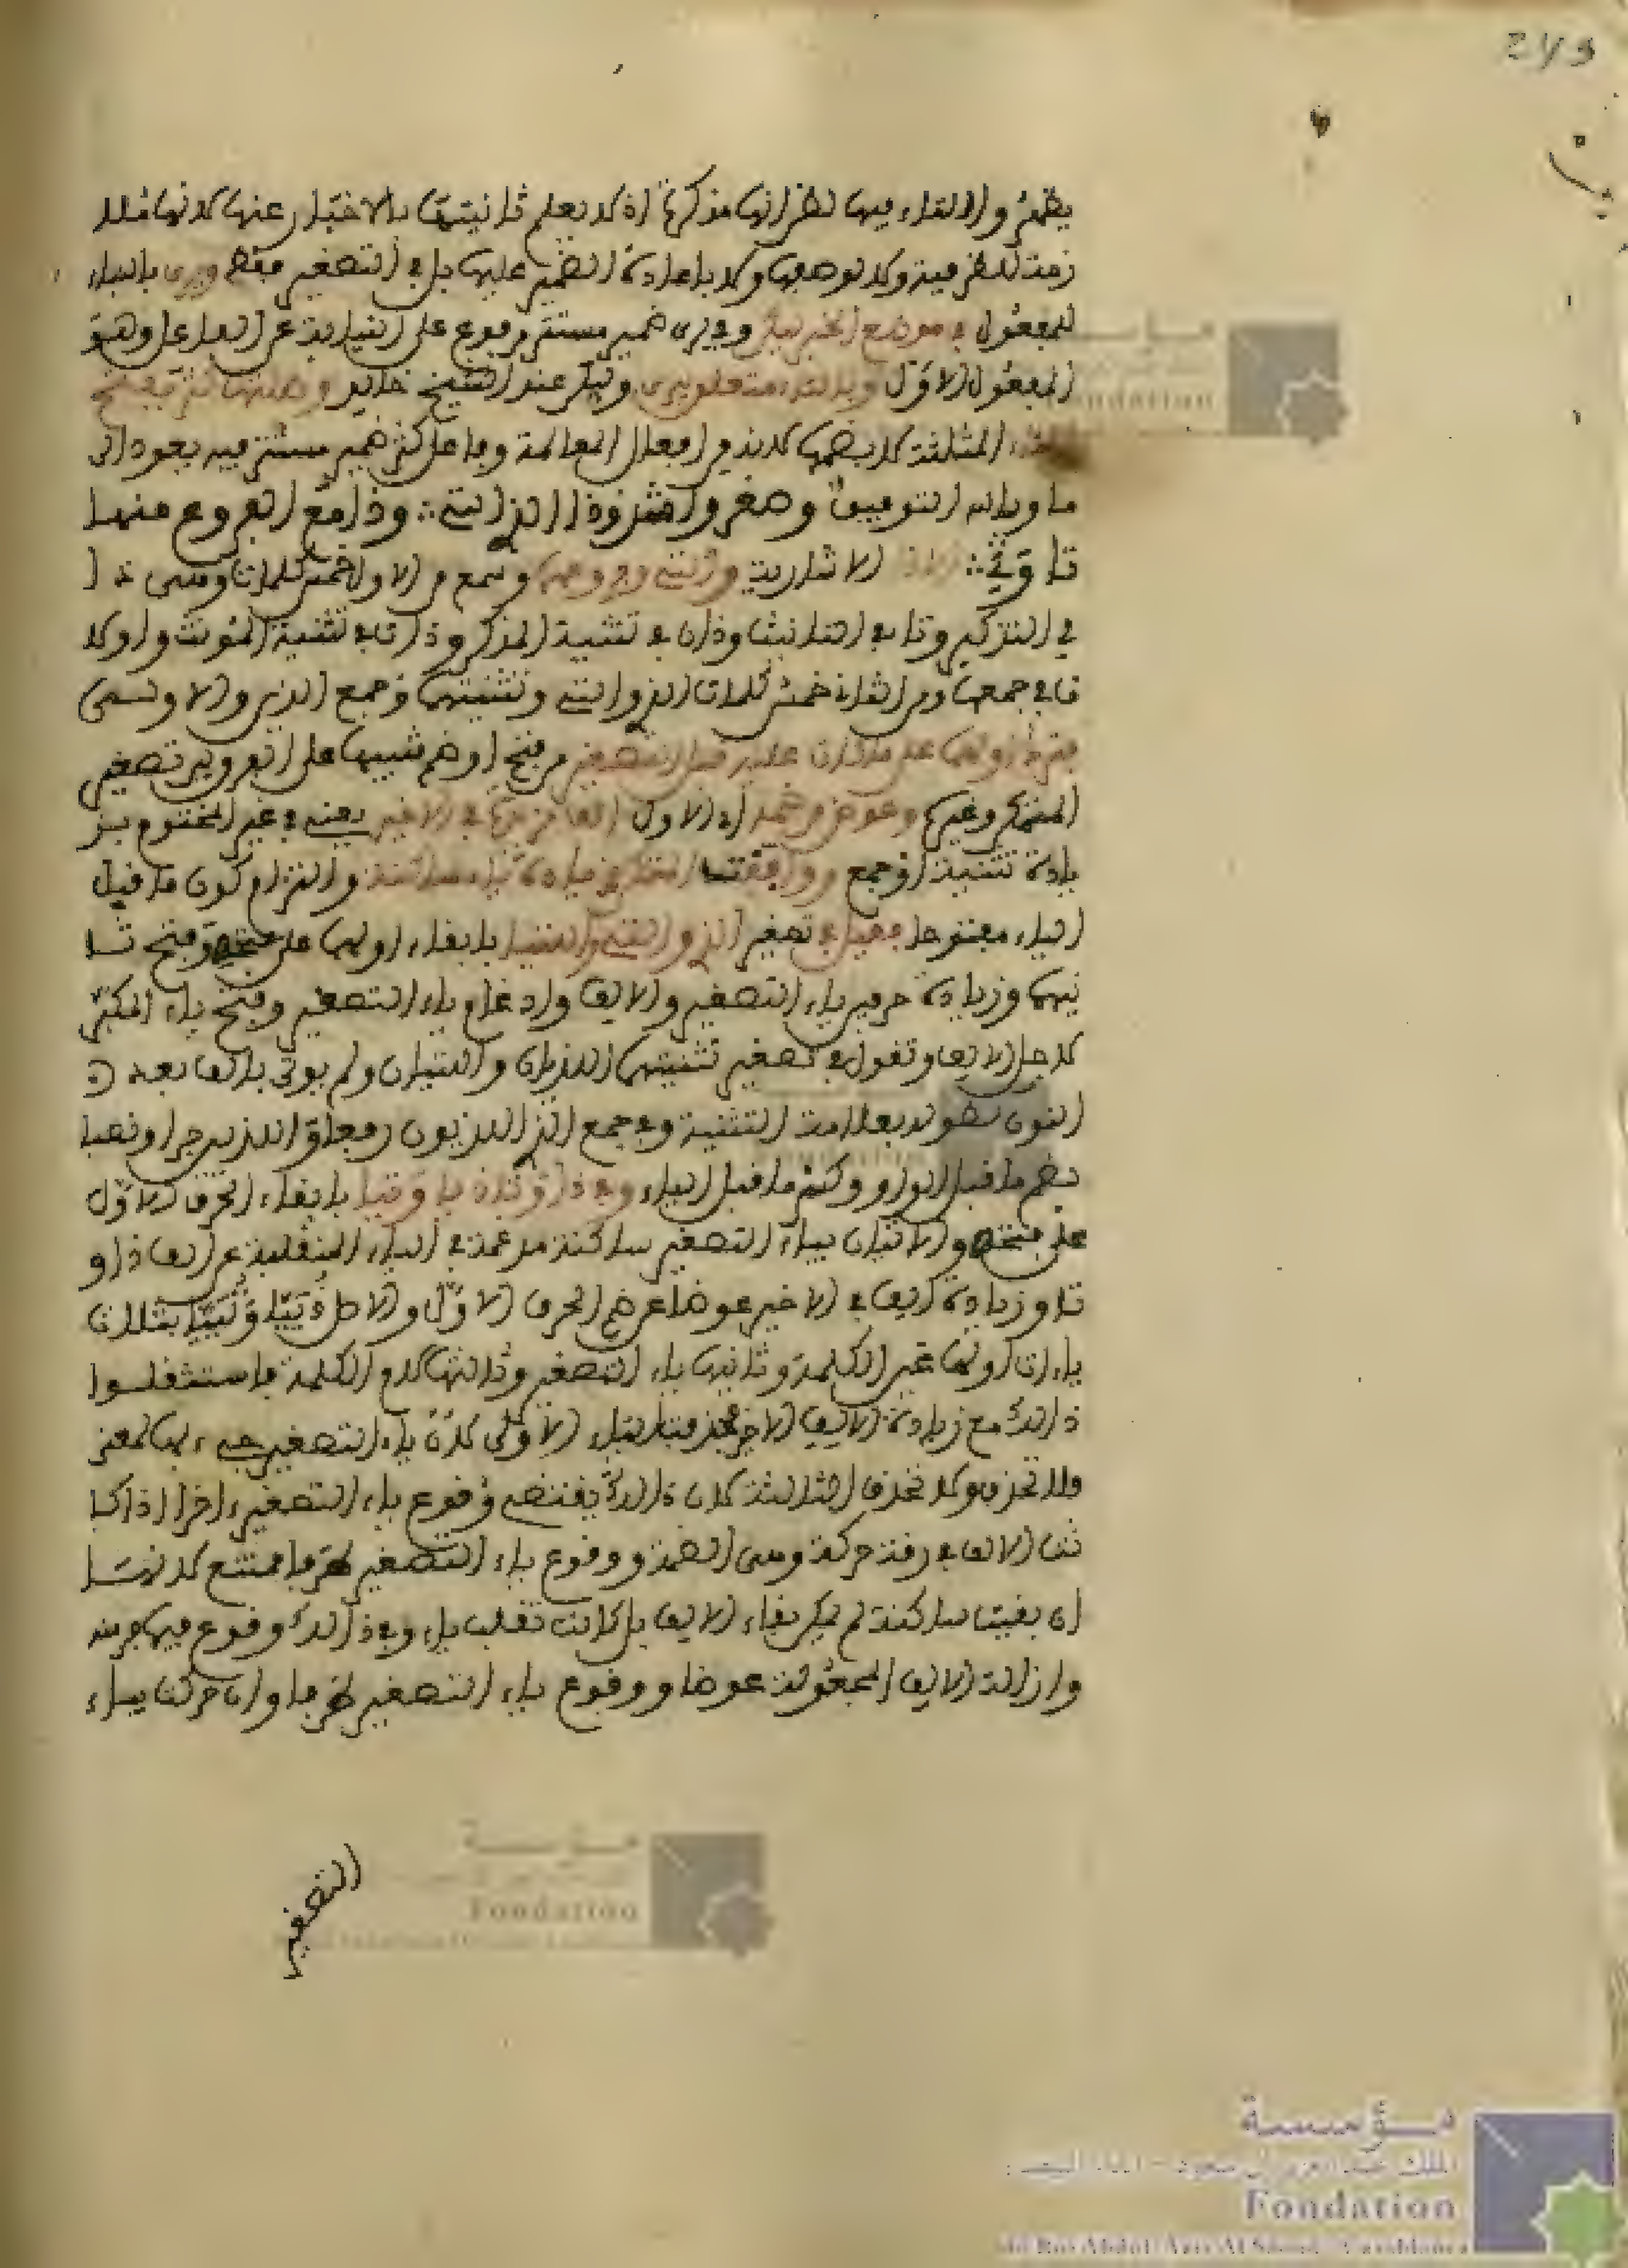 يظهر والا لتاء فيهما لظن انهما مذكران اذ لا يعلم تانيثهما بالاخبار عنهما لانهما ملا
زمة للظرفية ولا لوصفهما ولا باعادة الضمير عليهما بل في التصغير فقط ويرى بالبناء
للمفعول في موضع الخبر ليكن وفي يرى ضمير مستتر مرفوع على النيابة عن الفاعل وهو
المفعول الاول وبالتاء متعلق بيرى وليكن عند الشيخ خالد وضبطها كثر بفتح
الثاء المثلثة لا بضمها لانه من افعال المغالبة وفاعل كثر ضمير مستتر فيه يعود الى
ما وبالله التوفيق وصغروا شذوذا الذي التي وذا مع الفروع منها
تا وتي الاشارية والتي وفروعهما وسمع من الاول خمس كلمات وهي ذا
في التذكير وتا في التانيث وذان في تثنية المذكر وتان في تثنية المؤنث واولا
في جمعهما ومن الثاني خمس كلمات الذي والتي وتثنيتهما وجمع الذي والاولى
بترك اولها على ما كان عليه قبل التصغير من فتح او ضم تنبيها على الفرق بين تصغير
المتمكن وغيره وعوض من ضمه اي الاول الفا مزيدة في الاخير يعني في غير المختوم بز
يادة تثنية او جمع ووافقت المتمكن في زيادة ياء ساكنة والتزام كون ما قبل
الياء مفتوحا فقيل في تصغير الذي والتي اللذيا واللتيا بابقاء اولهما على فتحه وفتح ثا
نيهما وزيادة حرفين ياء التصغير والالف وادغام ياء التصغير وفتح ياء المكبر
لاجل الالف وتقول في تصغير تثنيتهما اللذيان واللتيان ولم يوتى بالف بعد
النون لطوله بعلامة التثنية وفي جمع الذي اللذيون رفعا واللذيين جرا ونصبا
بضم ما قبل الواو وكسر ما قبل الياء وفي ذا وتا ذيا وتيا بابقاء الحرف الاول
على فتحه والاتيان بياء التصغير ساكنة مدغمة في الياء المنقلبة عن الف ذا و
تا وزيادة الف في الاخير عوضا عن ضم الحرف الاول والاصل ذييا وتييا بثلاث
ياءات اولها عين الكلمة وثانيها ياء التصغير وثالثها لام الكلمة فاستثقلوا
ذالك مع زيادة الالف الاخر فحذفت الياء الاولى لان ياء التصغير جيء بها لمعنى
فلا تحذف ولا تحذف الثالثة لان ذالك يقتضي وقوع ياء التصغير اخرا اذا كا
نت الالف في رفعه حركة وهي الضمة ووقوع ياء التصغير طرفا ممتنع لانها
ان بقيت ساكنة لم يمكن بقاء الالف بل كانت تقلب ياء وفي ذالك وقوع فيما فر منه
وازالة الالف المجعولة عوضا ووقوع ياء التصغير طرفا وان حركت بياء
التصغير
مؤسسة
Fondation
du Roi Abdul-Aziz Al Saoud - Casablanca